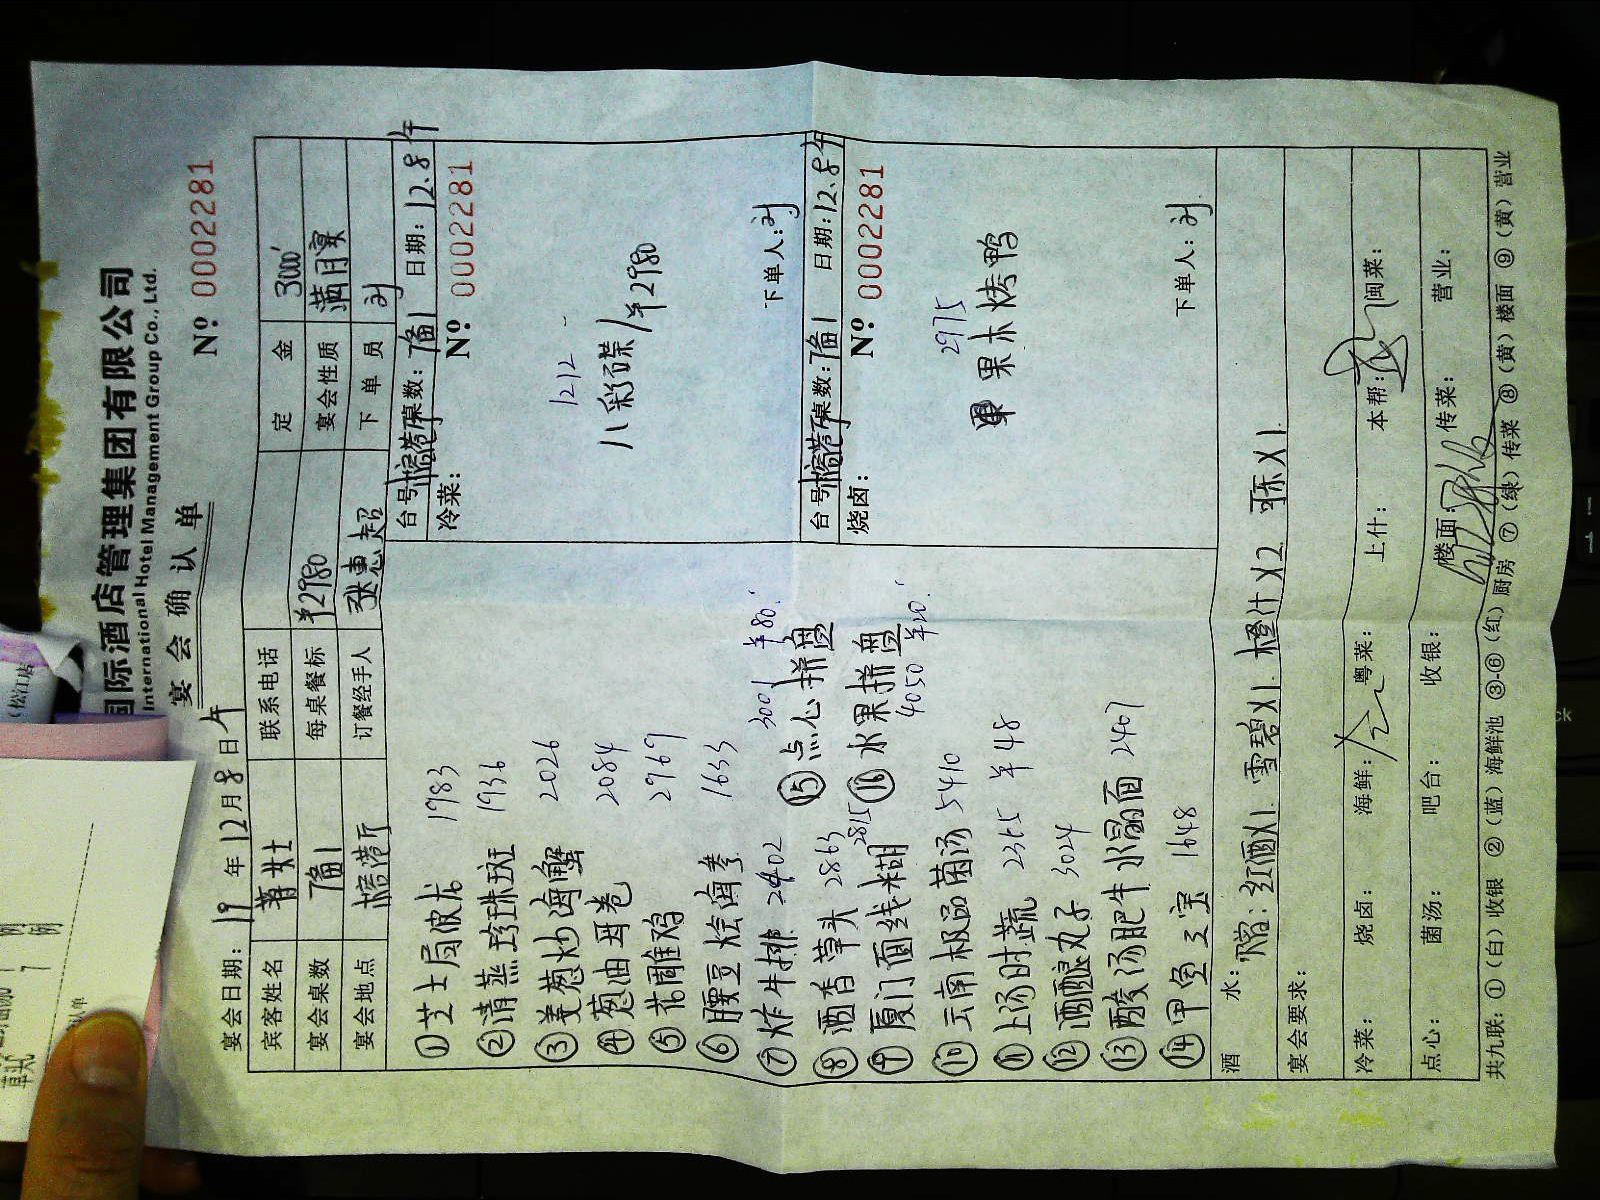 国际酒店管理集团有限公司
International Hotel Management Group Co., Ltd.
宴会确认单
№ 0002281
宴会日期: 19 年 12月 8 日 午
宾客姓名 联系电话 定 金 3000
宴会桌数 7备1 每桌餐标 ¥2980 宴会性质 满月宴
宴会地点 订餐经手人 下单员 刘
①芝士焗波龙 1983
②清蒸珍珠斑 1936
③姜葱炒海蟹 2026
④葱油母卷 2084
⑤花雕鸡 2969
⑥腰豆烩海参 1633
⑦炸牛排 2402
⑧酒香草头 2863
⑨厦门面线糊 2815
⑩云南极品菌汤 5410
⑪上汤时蔬 2365 ¥48
⑫酒酿丸子 3024
⑬酸汤肥牛水晶面 2407
⑭甲鱼三宝 1648
⑮点心拼盘 3001 ¥80
⑯水果拼盘 4050 ¥20
台号 桌数: 7备1 日期: 12.8午
冷菜: № 0002281
1212
八彩碟/¥2980
下单人: 刘
台号 桌数: 7备1 日期: 12.8午
烧卤: № 0002281
2975
果木烤鸭
下单人: 刘
酒 水: 红酒X1 雪碧X1 橙汁X2
宴会要求:
冷菜: 烧卤: 海鲜: 粤菜: 上什: 本帮: 闽菜:
点心: 菌汤: 吧台: 收银: 楼面: 传菜: 营业:
共九联: ①(白)收银 ②(蓝)海鲜池 ③-⑥(红)厨房 ⑦(绿)传菜 ⑧(黄)楼面 ⑨(黄)营业
(松江店